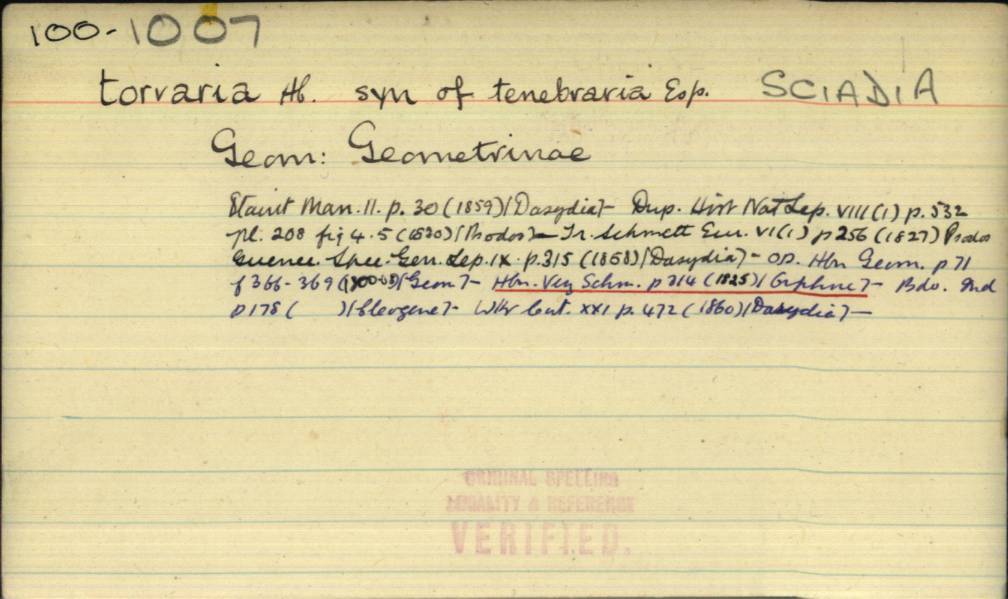 100-1007
torvaria Hb. syn of tenebraria Esp. SCIADIA
Geom: Geometrinae
Staint Man. II. p. 30 (1859) [Dasydia] - Dup. Hist Nat Lep. VIII (1) p. 532
pl. 208 fig 4.5 (1830) [Psodos] - Tr. Schmett Eur. VI (1) p 256 (1827) Psodos
Guenee Spec. Gen. Lep. IX. p. 315 (1858) [Dasydia] - OD. Hbn Geom. p 71
f 366-369 [Geom] - Hbn. Verz Schm. p 314 (1825) [Gnphne] - Bdv. Ind
p 178 ( ) [Cleogene] - Wkr Cat. XXI p. 472 (1860) [Dasydia] -
ORIGINAL SPELLING
LOCALITY & REFERENCE
VERIFIED.